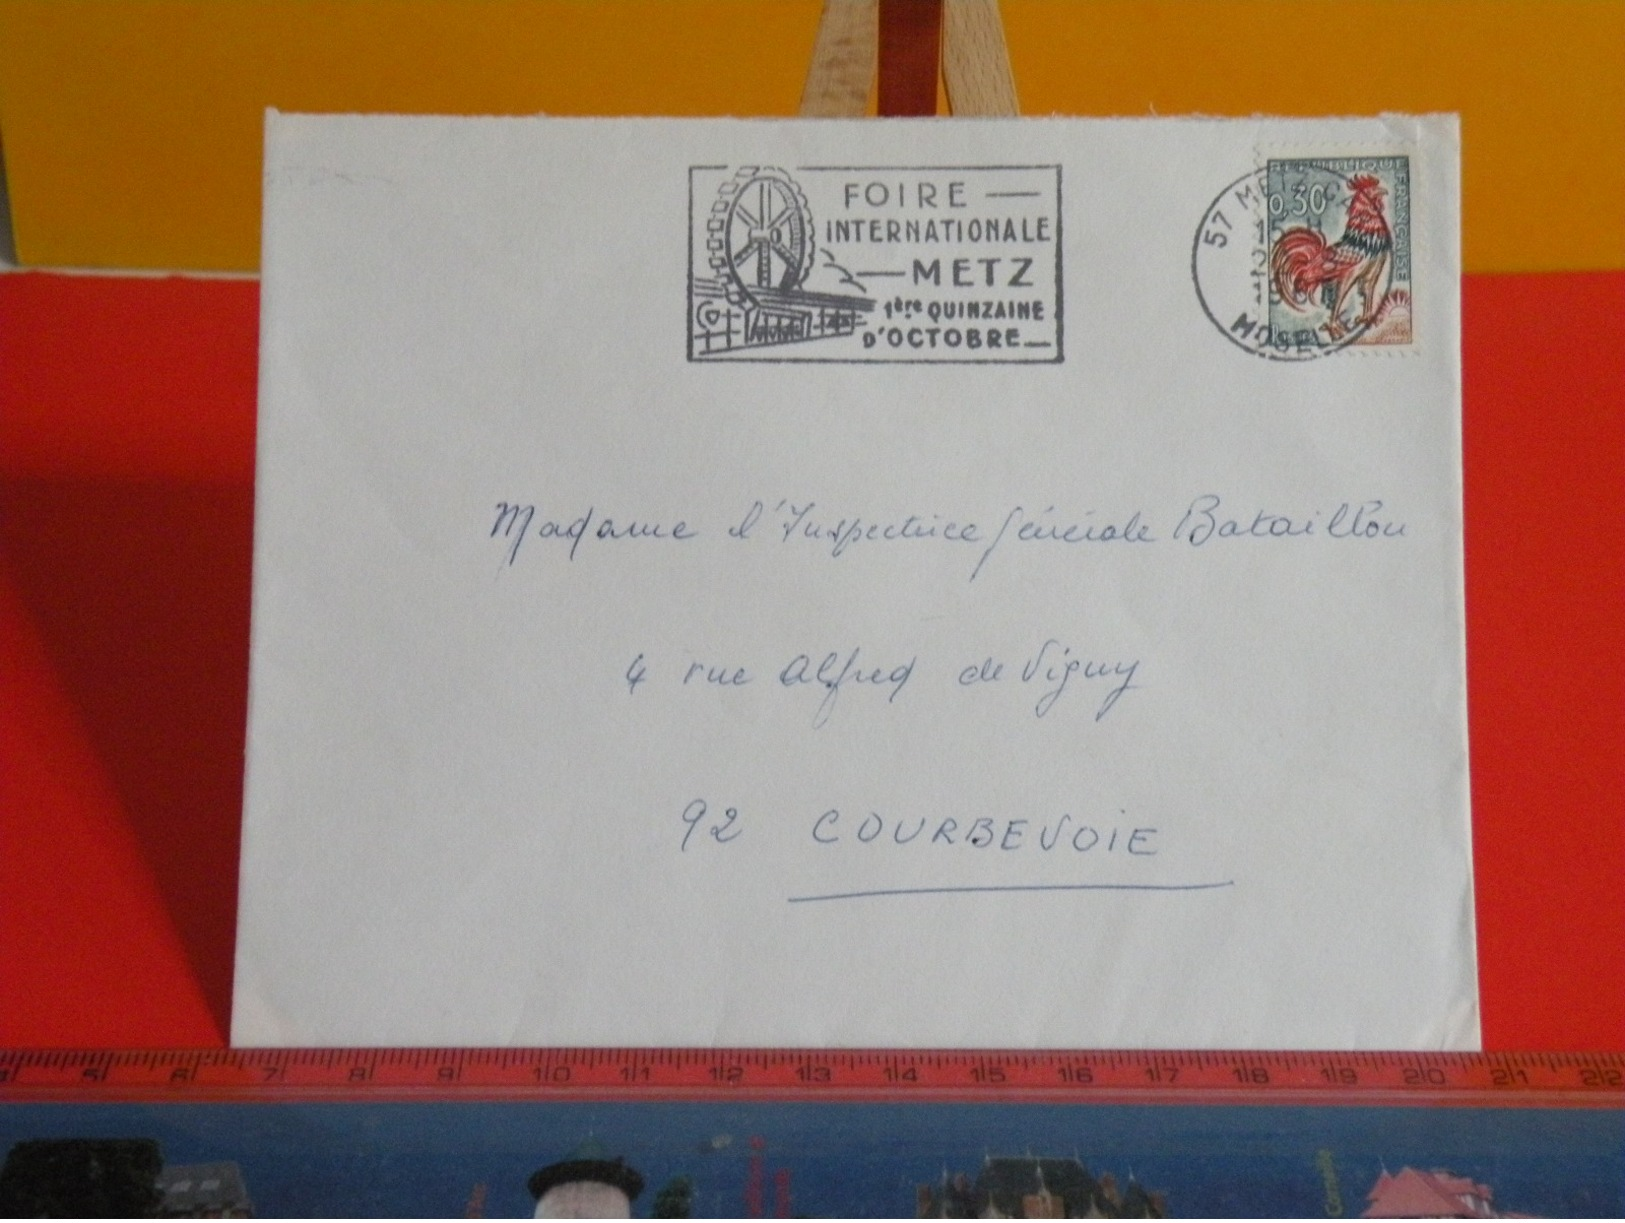 FOIRE
INTERNATIONALE
METZ
1ère QUINZAINE
D'OCTOBRE
REPUBLIQUE FRANÇAISE
0,30
57
MOSELLE
Madame l'Inspectrice Générale Bataillon
4 rue Alfred de Vigny
92 COURBEVOIE
5 6 7 8 9 10 11 12 13 14 15 16 17 18 19 20 21 22